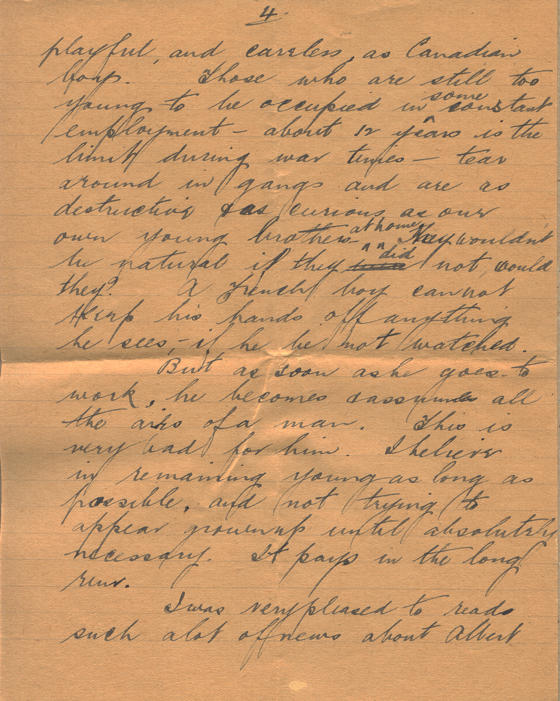 4
playful, and careless, as Canadian
boys. Those who are still too
young to be occupied in some constant
employment - about 12 years is the
limit during war times - tear
around in gangs and are as
destructive & as curious as our
own young brothers at home. They wouldn't
be natural if they did not, would
they? A French boy cannot
keep his hands off anything
he sees - if he be not watched.
But as soon as he goes to
work, he becomes & assumes all
the airs of a man. This is
very bad for him. I believe
in remaining young as long as
possible, and not trying to
appear grownup until absolutely
necessary. It pays in the long
run.
I was very pleased to read
such a lot of news about Albert